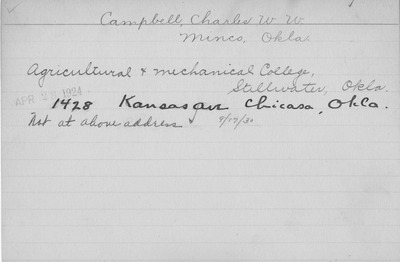 Campbell, Charles W. W.
Minco, Okla.
Agricultural & Mechanical College,
Stillwater, Okla.
APR 28 1924
1428 Kansas av Chicasa, Okla.
Not at above address 9/17/30